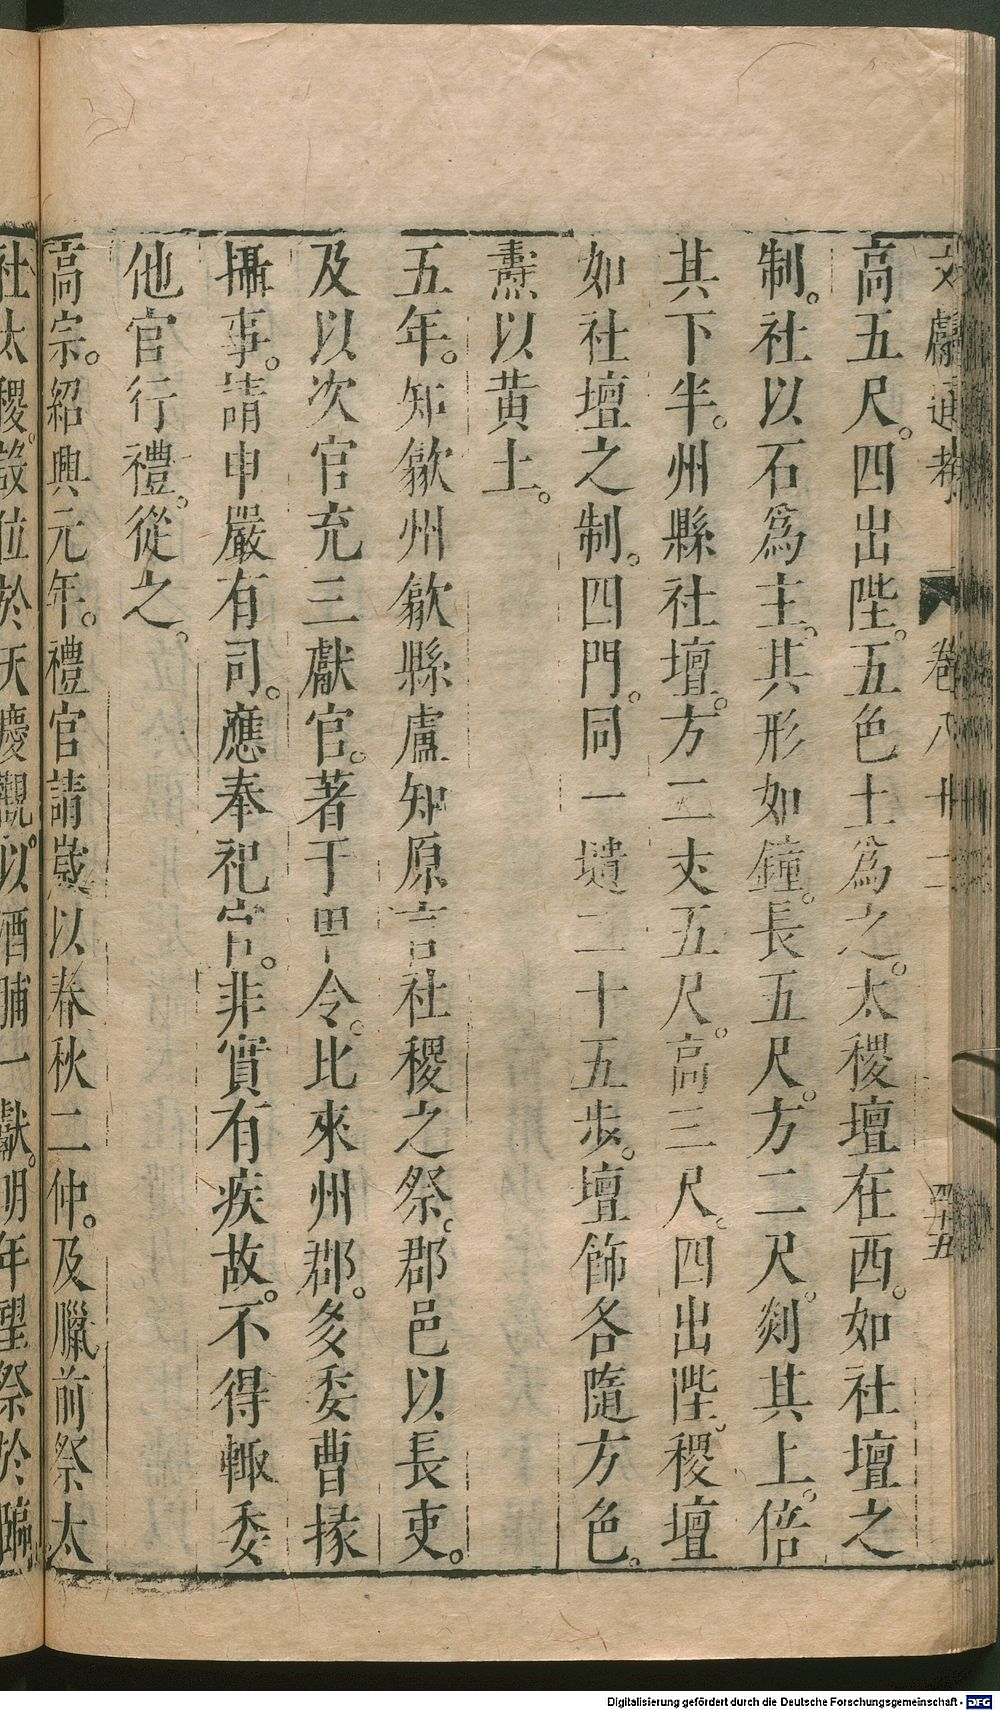 文獻通考 卷八十二 四十五
高五尺。四出陛。五色土爲之。太稷壇在西。如社壇之
制。社以石爲主。其形如鐘。長五尺。方二尺。剡其上。倍
其下半。州縣社壇。方二丈五尺。高三尺。四出陛。稷壇
如社壇之制。四門。同一壝二十五步。壇飾各隨方色。
燾以黃土。
五年。知歙州歙縣盧知原言社稷之祭。郡邑以長吏。
及以次官充三獻官。著于甲令。比來州郡。多委曹掾
攝事。請申嚴有司。應奉祀官。非實有疾故。不得輙委
他官行禮。從之。
高宗。紹興元年。禮官請嵗以春秋二仲。及臘前祭太
社太稷。設位於天慶觀。以酒脯一獻。明年望祭於臨
Digitalisierung gefördert durch die Deutsche Forschungsgemeinschaft - DFG